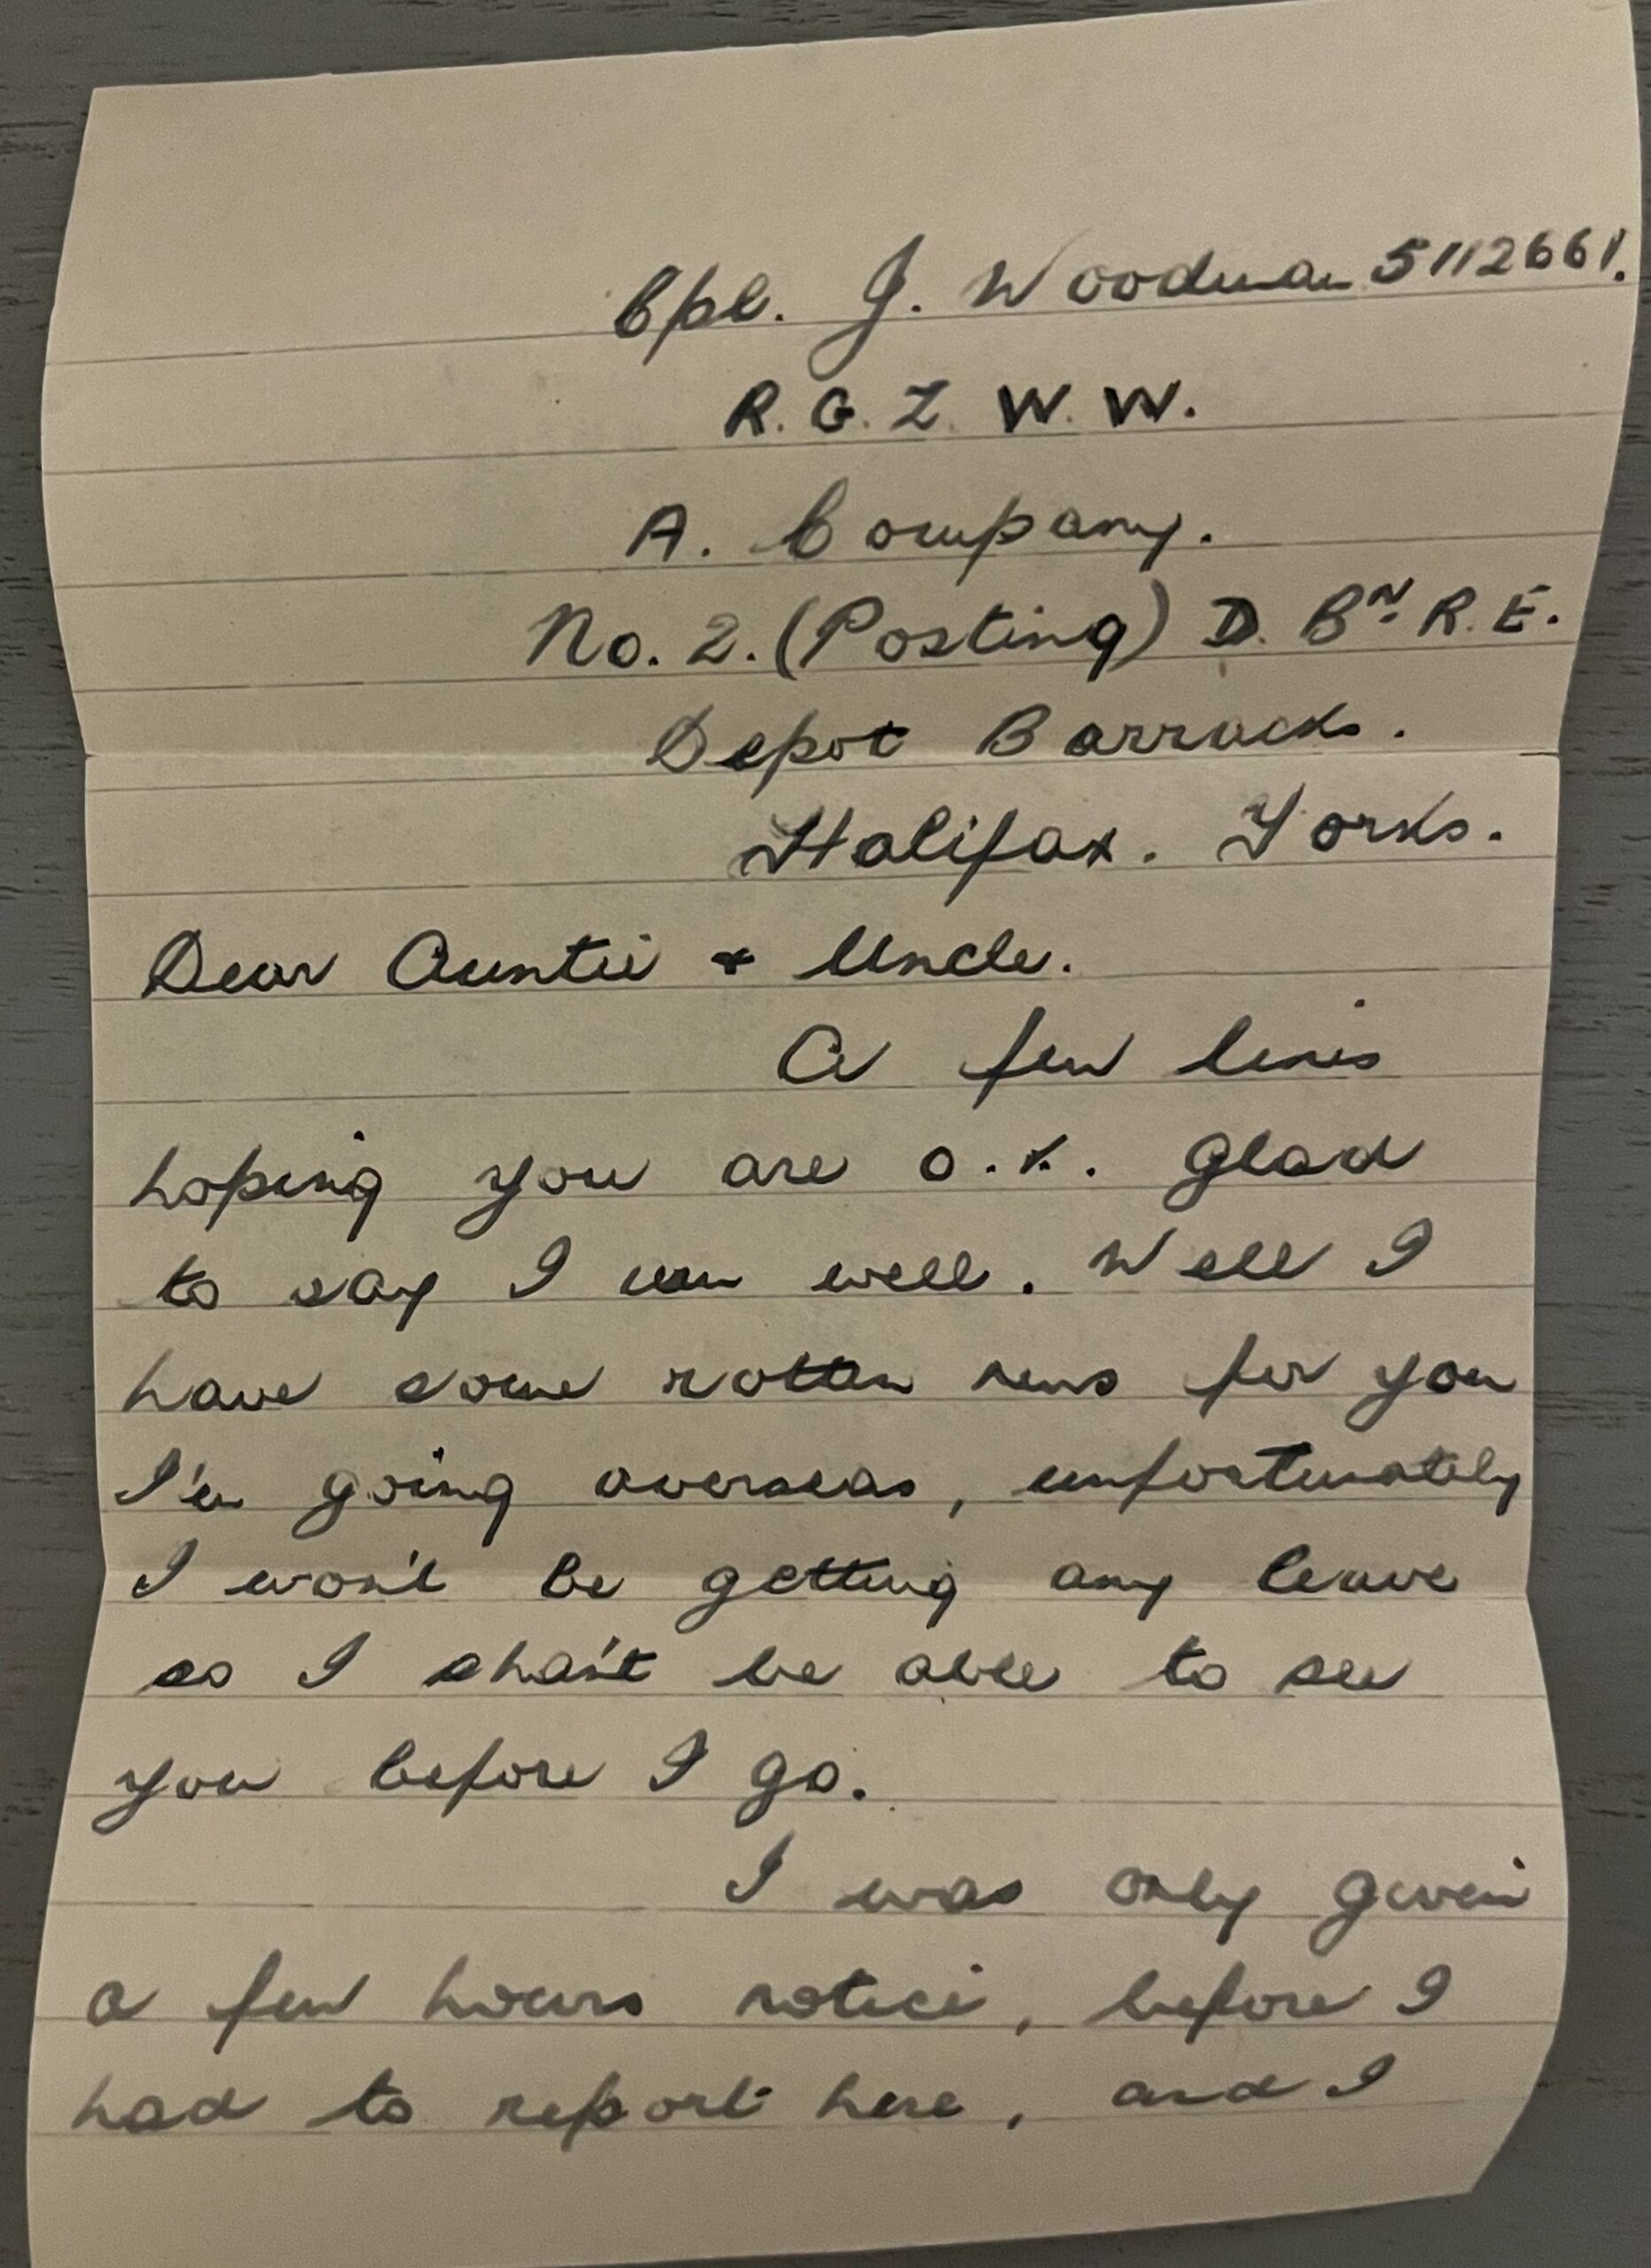 Cpl. J. Woodman 5112661.
R. G. Z. W. W.
A. Company.
No. 2. (Posting) D. Bn. R. E.
Depot Barracks.
Halifax. Yorks.
Dear Auntie & Uncle.
A few lines
hoping you are O.K. Glad
to say I am well. Well I
have some rotten news for you
I'm going overseas, unfortunately
I won't be getting any leave
so I shan't be able to see
you before I go.
I was only given
a few hours notice, before I
had to report here, and I